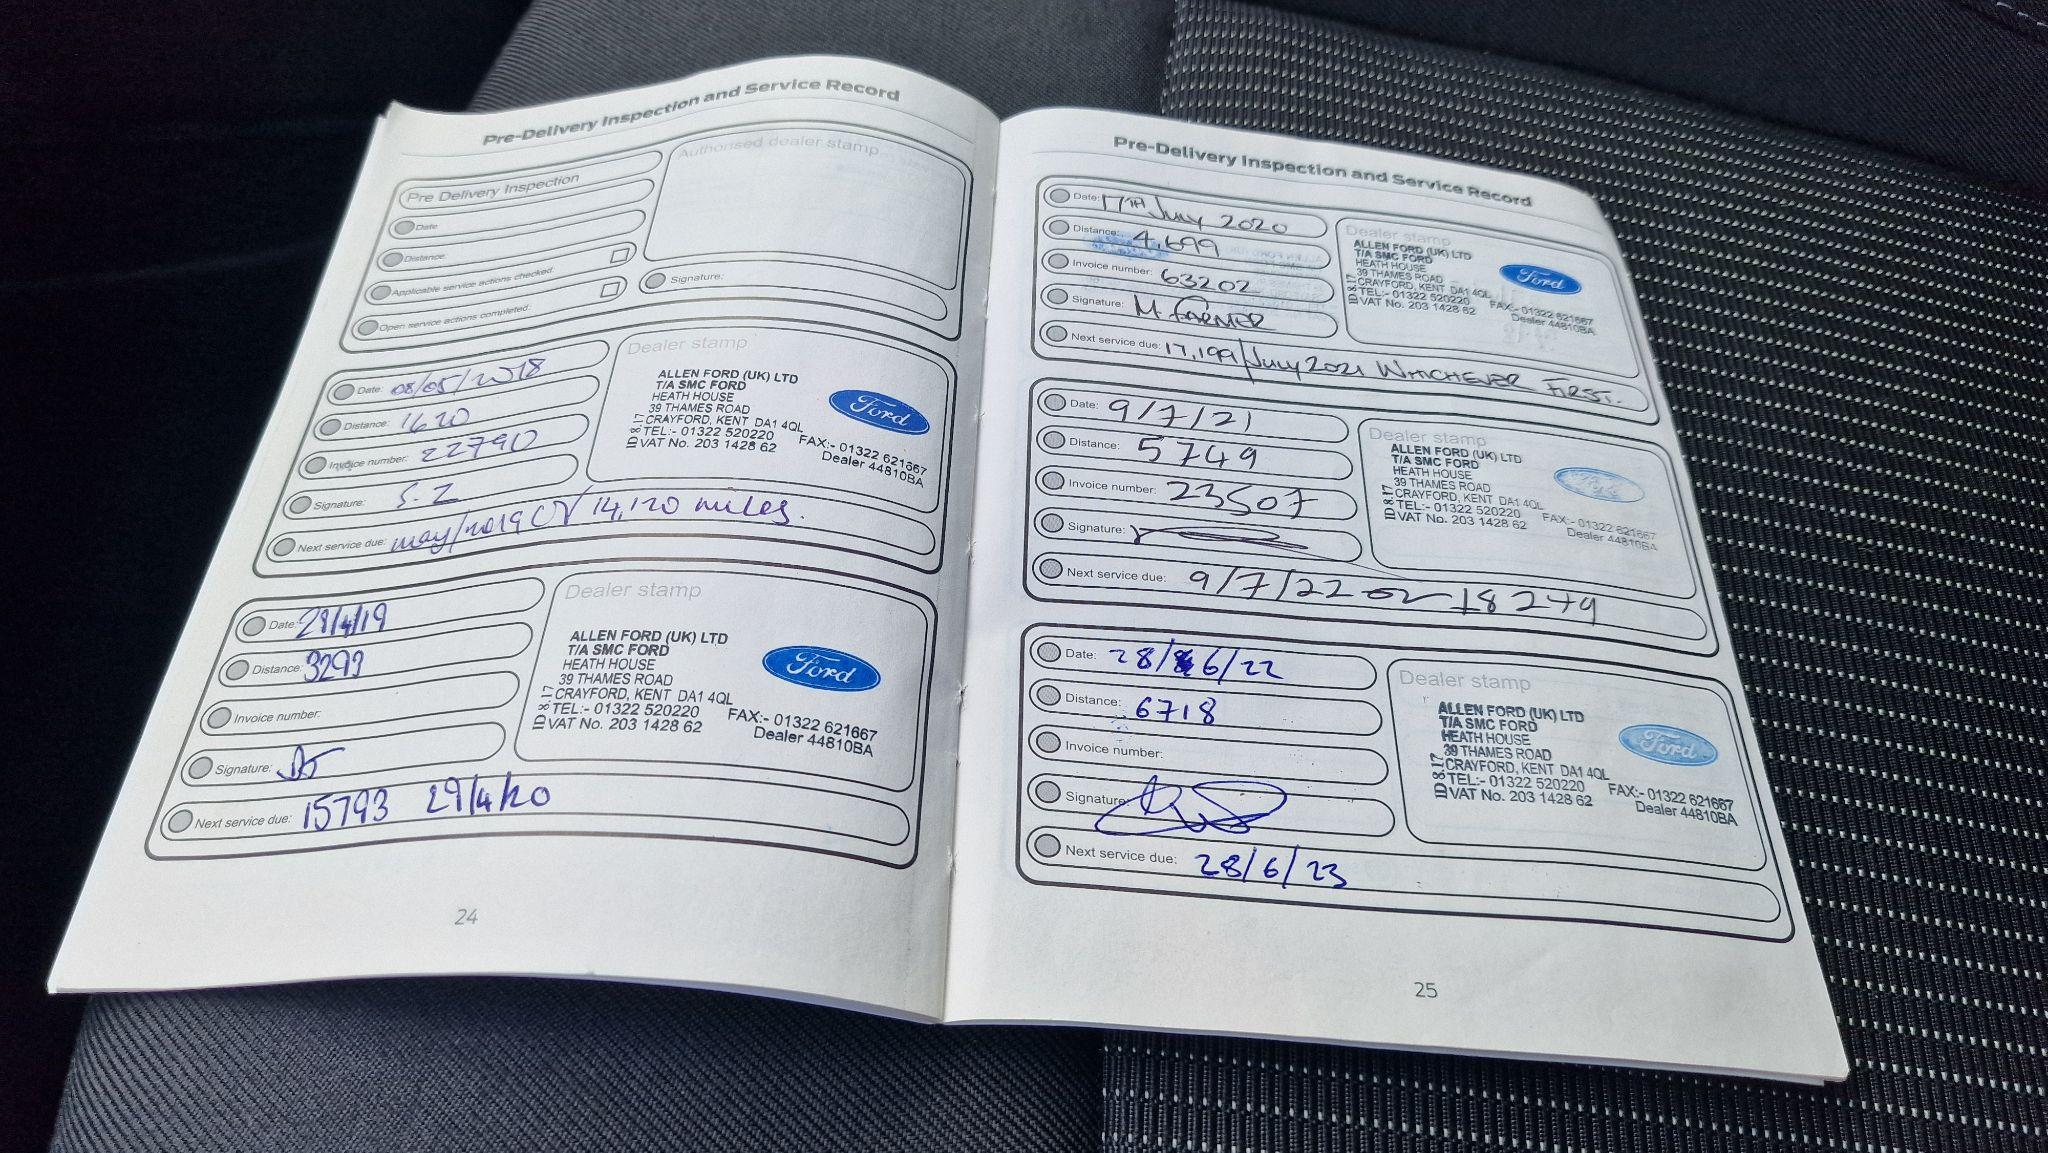 Pre-Delivery Inspection and Service Record
Pre Delivery Inspection
Date
Distance
Applicable service actions checked:
Open service actions completed:
Authorised dealer stamp
Signature:
Date: 08/05/2018
Distance: 1620
Invoice number: 22790
Signature: S.Z
Next service due: may/2019 or 14,120 miles.
Dealer stamp
ALLEN FORD (UK) LTD
T/A SMC FORD
HEATH HOUSE
39 THAMES ROAD
CRAYFORD, KENT DA1 4QL
TEL:- 01322 520220 FAX:- 01322 621667
VAT No. 203 1428 62 Dealer 44810BA
ID 8.17
Ford
Date: 29/4/19
Distance: 3293
Invoice number:
Signature:
Next service due: 15793 29/4/20
Dealer stamp
ALLEN FORD (UK) LTD
T/A SMC FORD
HEATH HOUSE
39 THAMES ROAD
CRAYFORD, KENT DA1 4QL
TEL:- 01322 520220 FAX:- 01322 621667
VAT No. 203 1428 62 Dealer 44810BA
ID 8.17
Ford
24
Pre-Delivery Inspection and Service Record
Date: 17TH July 2020
Distance: 4,699
Invoice number: 63202
Signature: M FARMER
Next service due: 17,199/July 2021 WHICHEVER FIRST.
Dealer stamp
ALLEN FORD (UK) LTD
T/A SMC FORD
HEATH HOUSE
39 THAMES ROAD
CRAYFORD, KENT DA1 4QL
TEL:- 01322 520220 FAX:- 01322 621667
VAT No. 203 1428 62 Dealer 44810BA
ID 8.17
Ford
Date: 9/7/21
Distance: 5749
Invoice number: 23507
Signature:
Next service due: 9/7/22 or 18249
Dealer stamp
ALLEN FORD (UK) LTD
T/A SMC FORD
HEATH HOUSE
39 THAMES ROAD
CRAYFORD, KENT DA1 4QL
TEL:- 01322 520220 FAX:- 01322 621667
VAT No. 203 1428 62 Dealer 44810BA
ID 8.17
Date: 28/6/22
Distance: 6718
Invoice number:
Signature:
Next service due: 28/6/23
Dealer stamp
ALLEN FORD (UK) LTD
T/A SMC FORD
HEATH HOUSE
39 THAMES ROAD
CRAYFORD, KENT DA1 4QL
TEL:- 01322 520220 FAX:- 01322 621667
VAT No. 203 1428 62 Dealer 44810BA
ID 8.17
Ford
25